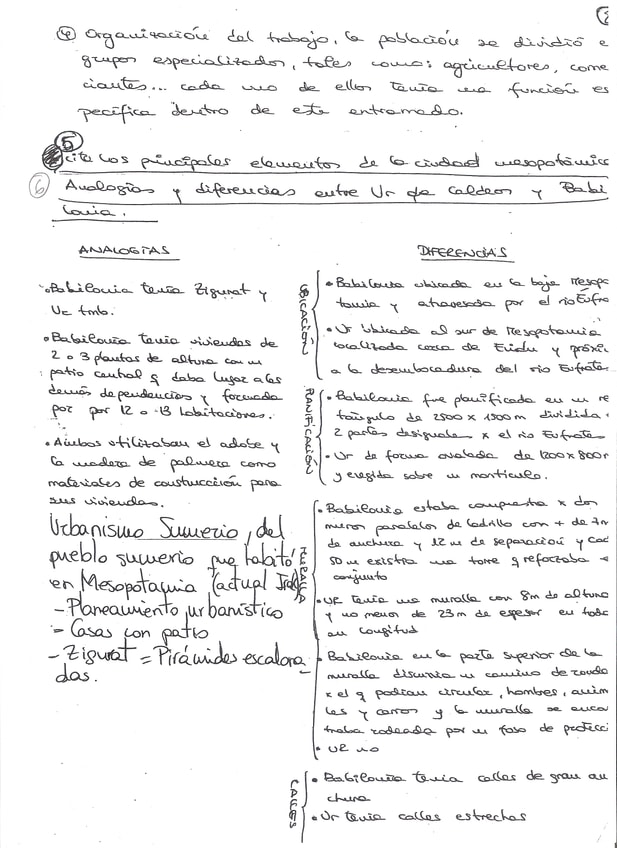 ④ Organización del trabajo, la población se dividió e
grupos especializados, tales como: agricultores, come
ciantes... cada uno de ellos tenía una función es
pecífica dentro de este entramado.
⑤
cita los principales elementos de la ciudad mesopotámica
⑥ Analogías y diferencias entre Ur de Caldeos y Babi
lonia.
ANALOGÍAS
• Babilonia tenía Zigurat y
Ur tmb.
• Babilonia tenía viviendas de
2 o 3 plantas de altura con un
patio central q daba lugar a las
demás dependencias y formada
por por 12 o 13 habitaciones.
• Ambos utilizaban el adobe y
la madera de palmera como
materiales de construcción para
sus viviendas.
Urbanismo Sumerio, del
pueblo sumerio que habitó
en Mesopotamia (actual Irak)
- Planeamiento urbanístico
- Casas con patio
- Zigurat = Pirámides escalona
das.
DIFERENCIAS
UBICACIÓN
• Babilonia ubicada en la baja Mesopo
tamia y atravesada por el río Eufra
• Ur ubicada al sur de Mesopotamia
localizada cerca de Eridu y próxi
a la desembocadura del río Eufrates
PLANIFICACIÓN
• Babilonia fue planificada en un re
tángulo de 2500 x 1500 m dividida
2 partes desiguales x el río Eufrates
• Ur de forma ovalada de 1200 x 800 m
y eregida sobre un montículo.
MURALLA
• Babilonia estaba compuesta x dos
muros paralelos de ladrillo con + de 7m
de anchura y 12 m de separación y cad
50 m existía una torre q reforzaba
conjunto
• UR tenía una muralla con 8m de altura
y no menos de 23m de espesor en toda
su longitud
• Babilonia en la parte superior de la
muralla discurría un camino de ronda
x el q podían circular, hombres, anim
les y carros y la muralla se encon
traba rodeada por un foso de protecci
• UR no
CALLES
• Babilonia tenía calles de gran an
chura
• Ur tenía calles estrechas